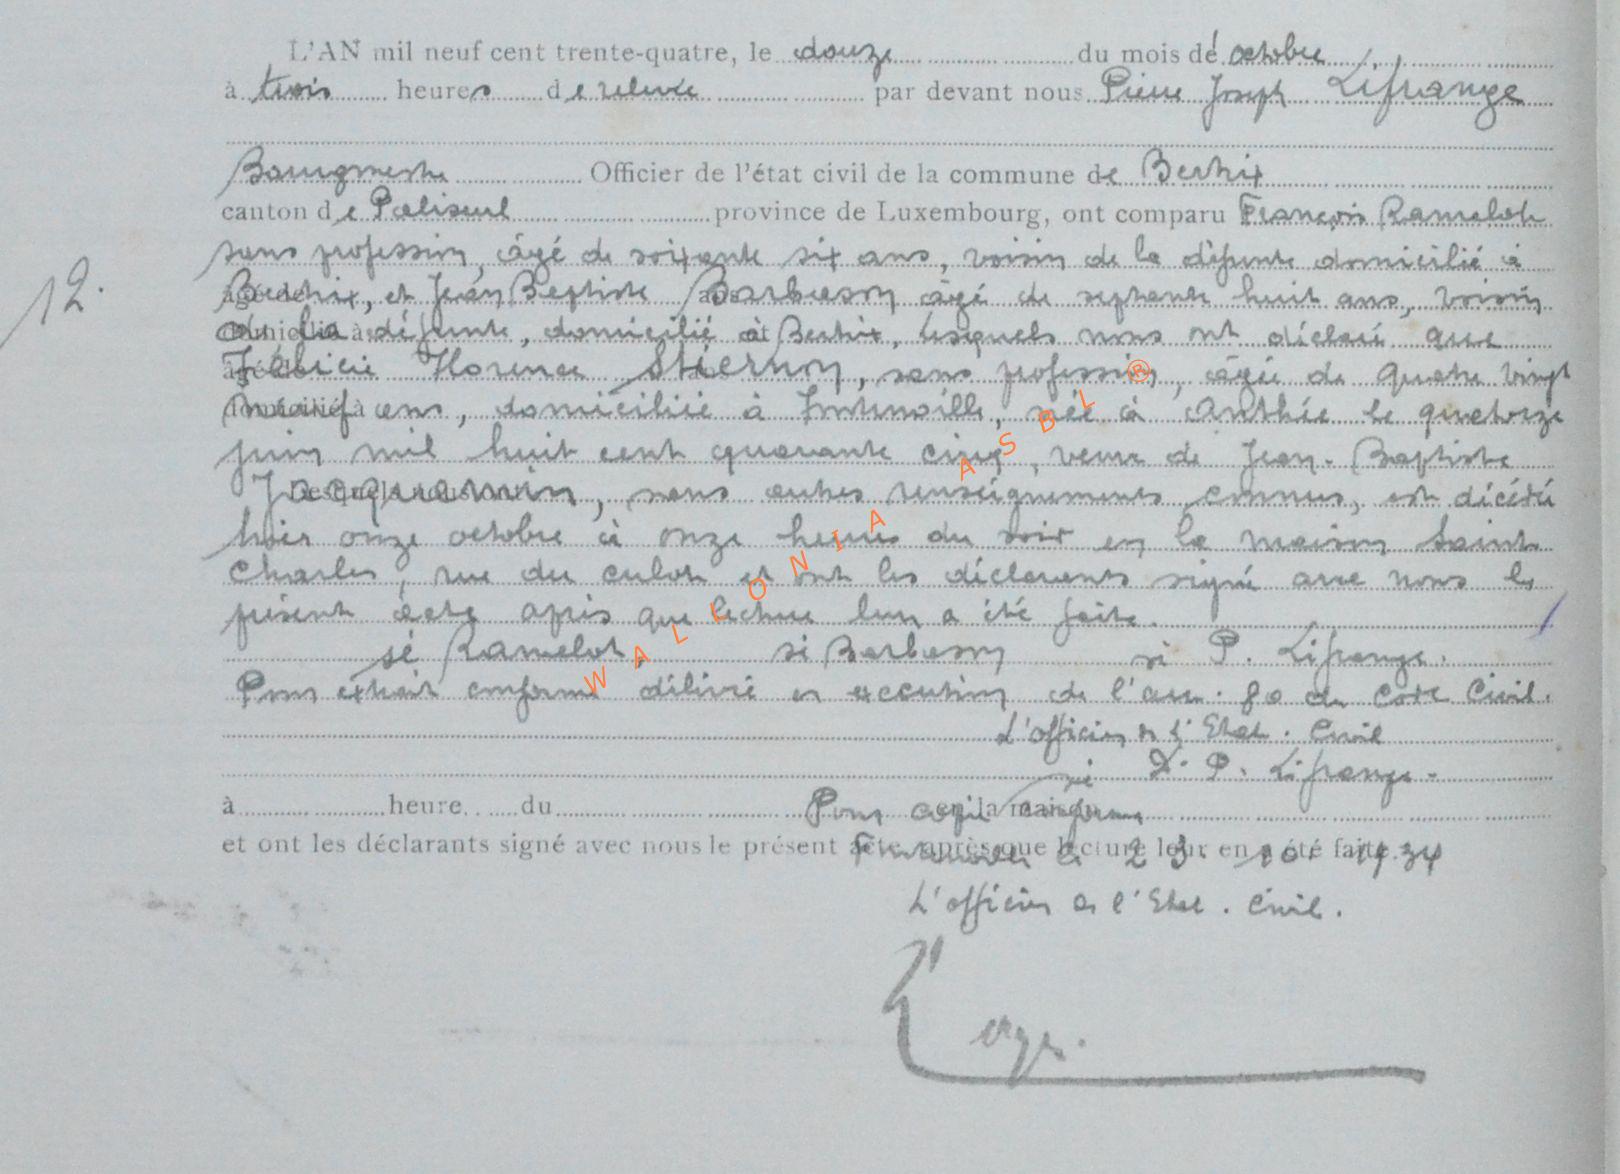 L'AN mil neuf cent trente-quatre, le douze du mois de octobre
à trois heures de relevée par devant nous Pierre Joseph Lifrange
Bourgmestre Officier de l'état civil de la commune de Bertrix
canton de Paliseul province de Luxembourg, ont comparu François Ramelot
sans profession, âgé de soixante six ans, voisin de la défunte domicilié à
12.
Bertrix, et Jean Baptiste Barbason âgé de septante huit ans, voisin
de la défunte, domicilié à Bertrix, lesquels nous ont déclaré que
Félicie Florence Stiernon, sans profession, âgée de quatre vingt
neuf ans, domiciliée à , née à Anthée le quatorze
juin mil huit cent quarante cinq, veuve de Jean-Baptiste
Jacquemin, sans autres renseignements connus, est décédée
hier onze octobre à onze heures du soir en la maison Saint
Charles, rue du culot et ont les déclarants signé avec nous le
présent acte après que lecture leur a été faite.
sé Ramelot, sé Barbason sé P. Lifrange.
Pour extrait conforme délivré en exécution de l'art. 80 du Code Civil.
L'officier de l'Etat. Civil
sé P. Lifrange.
à heure du en la maison
Pour copie conforme
et ont les déclarants signé avec nous le présent acte, après que lecture leur en a été faite.
le 23. 10. 1934
L'officier de l'Etat. Civil.
WALLONIA ASBL ®